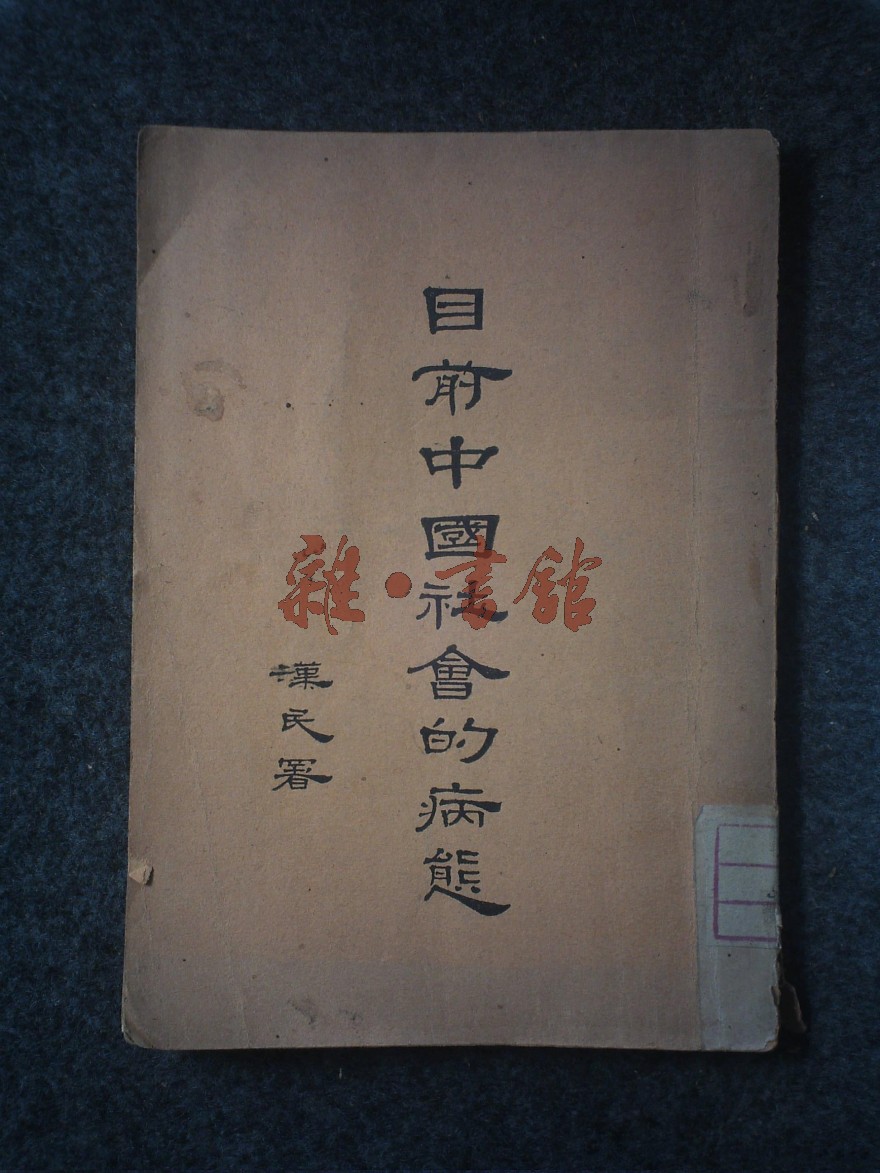 目前中國社會的病態
漢民署
雜·書館